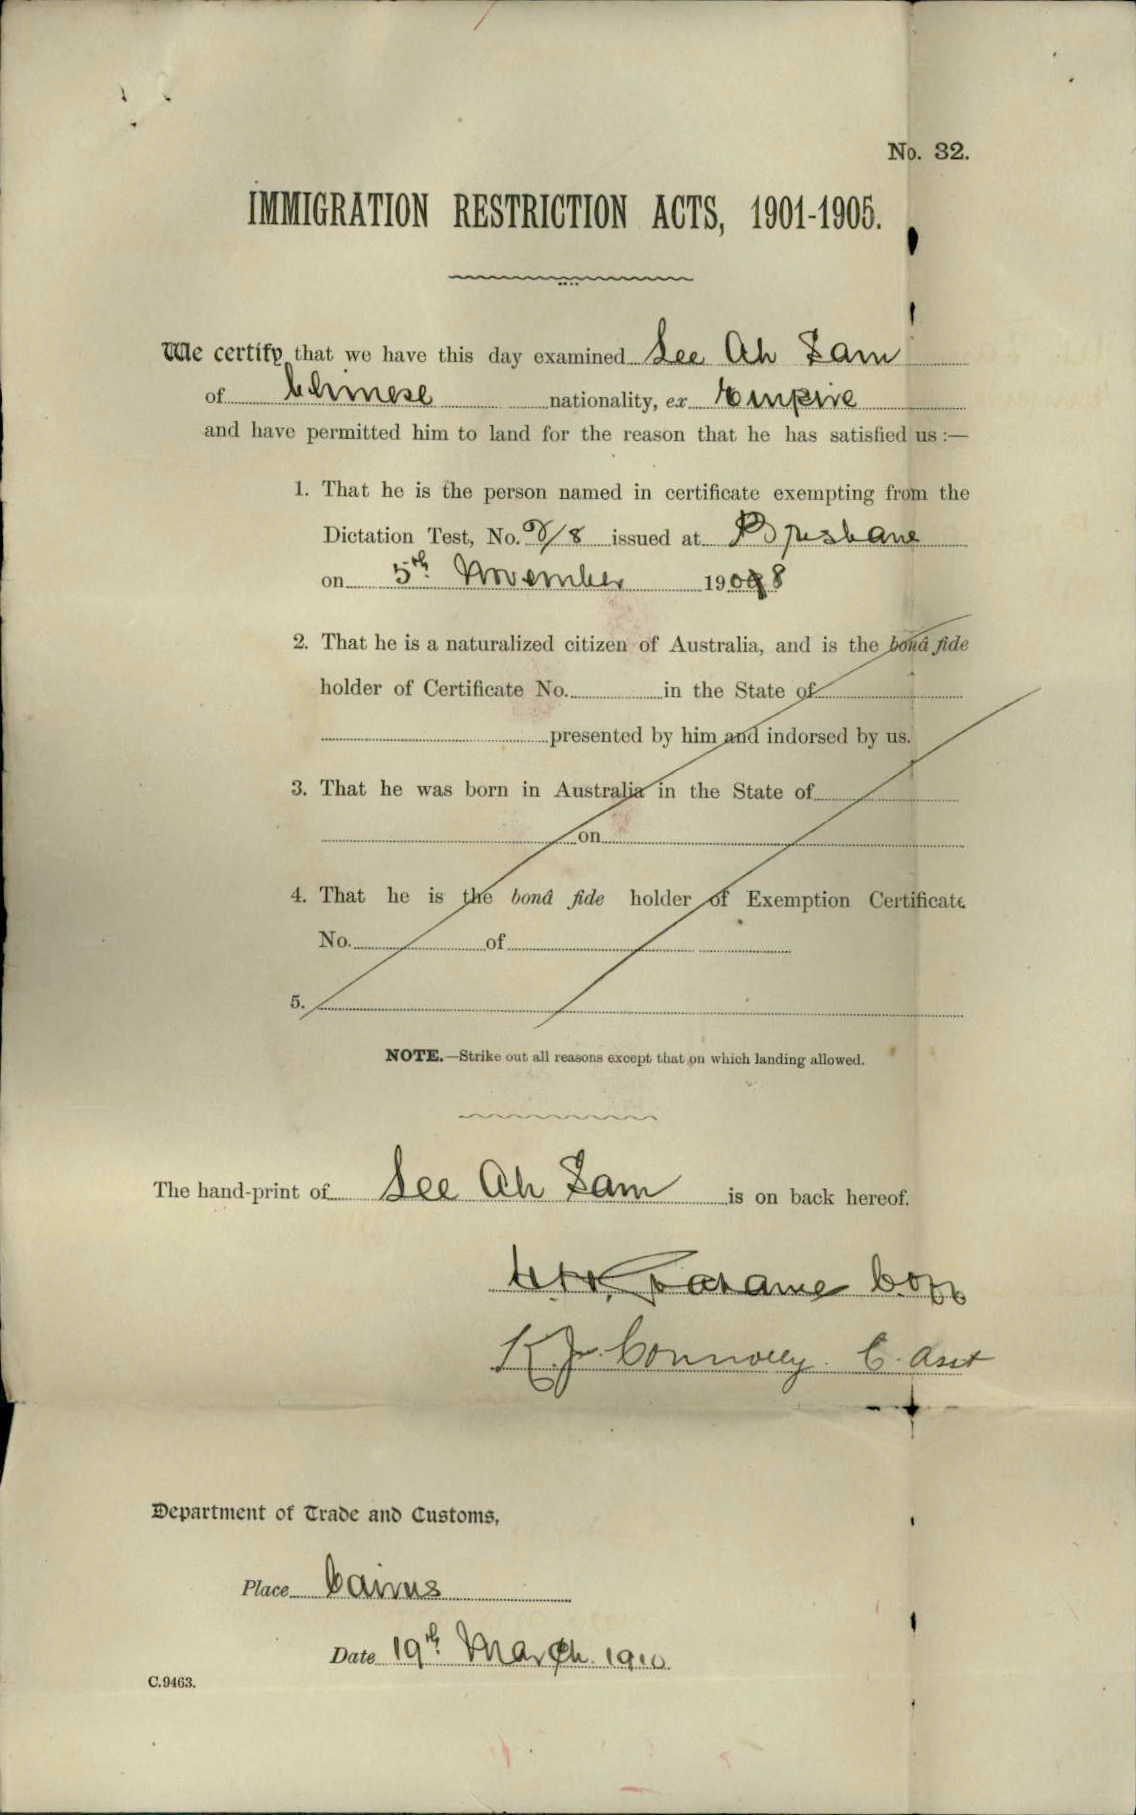 No. 32.
IMMIGRATION RESTRICTION ACTS, 1901-1905.
We certify that we have this day examined See Ah Sam
of Chinese nationality, ex Empire
and have permitted him to land for the reason that he has satisfied us :—
1. That he is the person named in certificate exempting from the
Dictation Test, No. /8 issued at Brisbane
on 5th November 1908
2. That he is a naturalized citizen of Australia, and is the bonâ fide
holder of Certificate No. in the State of
presented by him and indorsed by us.
3. That he was born in Australia in the State of
on
4. That he is the bonâ fide holder of Exemption Certificate
No. of
5.
NOTE.—Strike out all reasons except that on which landing allowed.
The hand-print of See Ah Sam is on back hereof.
K.J. Connolly. C. Asst
Department of Trade and Customs,
Place Cairns
Date 19th March 1910
C.9463.